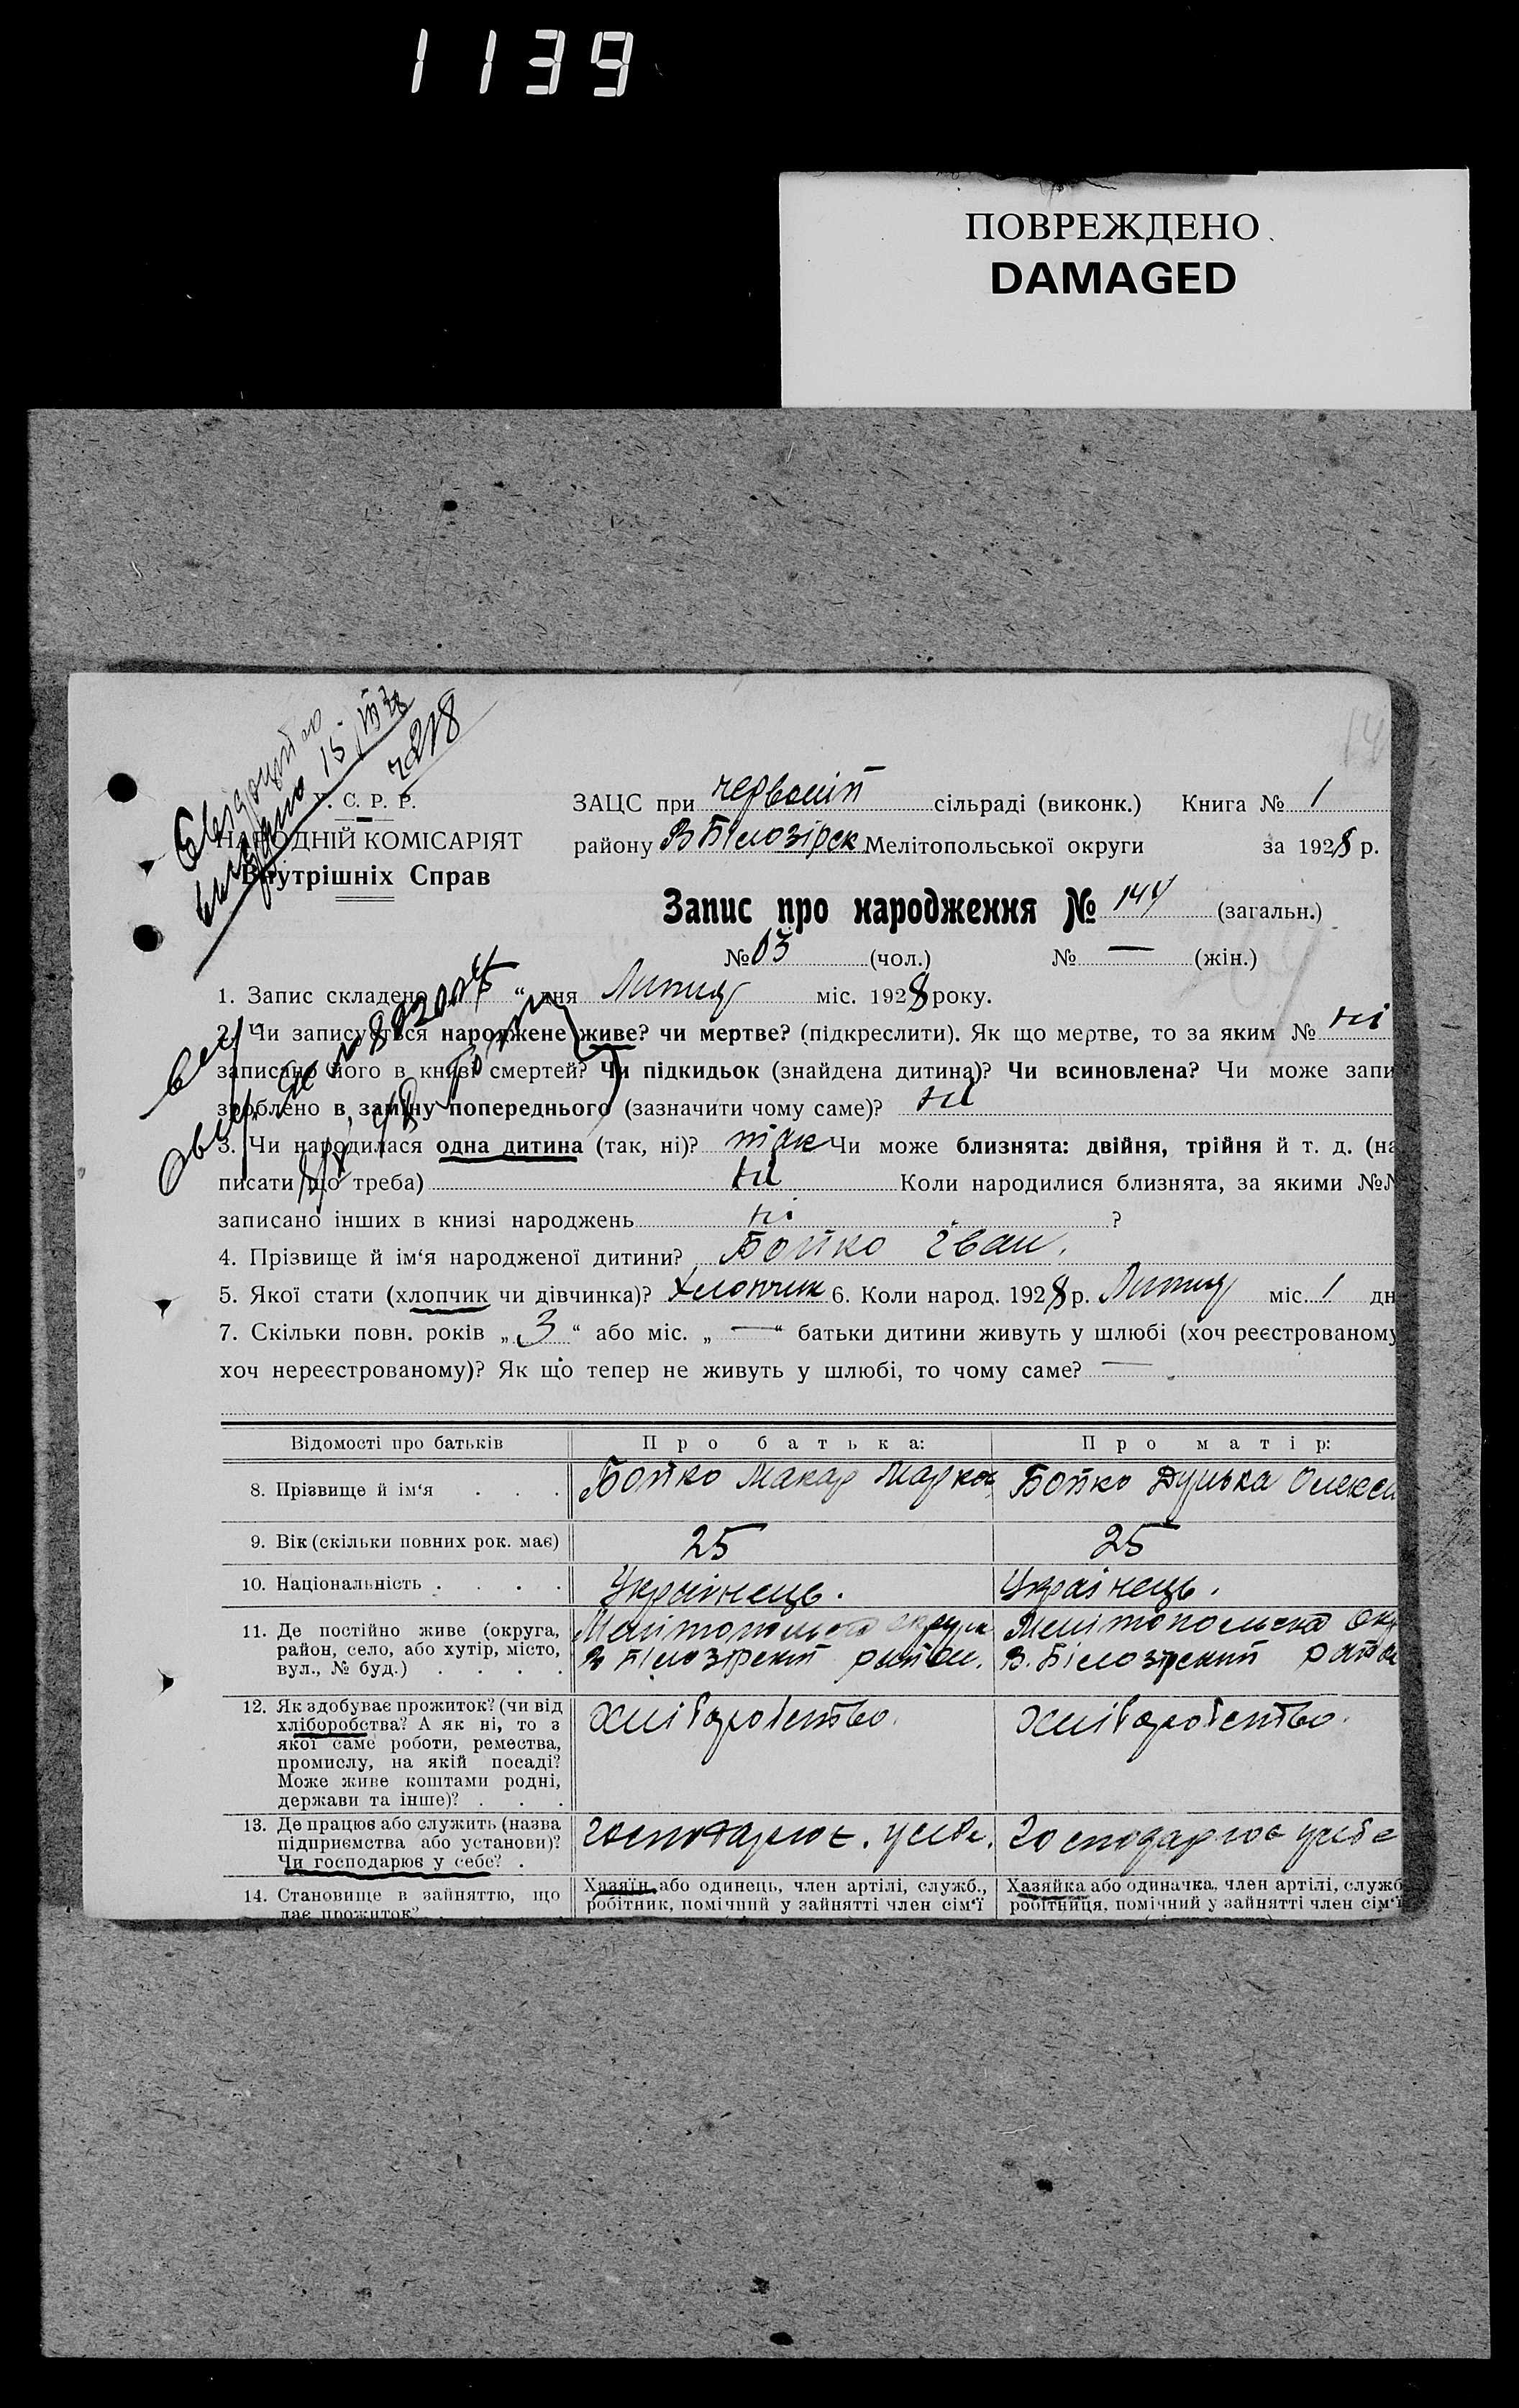 1139
ПОВРЕЖДЕНО
DAMAGED
Свідоцтво
видано 15/III 28
№ 218
У. С. Р. Р.
НАРОДНІЙ КОМІСАРІЯТ
Внутрішніх Справ
ЗАЦС при сільраді (виконк.) Книга № 1
району В Білозірск Мелітопольської округи за 1928 р.
Запис про народження № 144 (загальн.)
№ 03 (чол.) № — (жін.)
1. Запис складено " дня Лютня міс. 1928 року.
2. Чи записується народжене живе? чи мертве? (підкреслити). Як що мертве, то за яким № ні
записано його в книзі смертей? Чи підкидьок (знайдена дитина)? Чи всиновлена? Чи може запи
зроблено в заміну попереднього (зазначити чому саме)? ні
3. Чи народилася одна дитина (так, ні)? так Чи може близнята: двійня, трійня й т. д. (на
писати що треба) ні Коли народилися близнята, за якими №№
записано інших в книзі народжень ні ?
4. Прізвище й ім'я народженої дитини? Бойко Іван.
5. Якої стати (хлопчик чи дівчинка)? Хлопчик 6. Коли народ. 1928 р. Лютня міс. 1 дн
7. Скільки повн. років „ 3 “ або міс. „ — “ батьки дитини живуть у шлюбі (хоч реєстрованому
хоч нереєстрованому)? Як що тепер не живуть у шлюбі, то чому саме? —
Відомості про батьків Про батька: Про матір:
8. Прізвище й ім'я . . . Бойко Макар Марков Бойко Дунька Олекси
9. Вік (скільки повних рок. має) 25 25
10. Національність . . . . Українець. Українець.
11. Де постійно живе (округа,
район, село, або хутір, місто,
вул., № буд.) . . . .
Мелітопольська округа
В Білозірский район.
Мелітопольска окр
В. Білозірский район
12. Як здобуває прожиток? (чи від
хліборобства? А як ні, то з
якої саме роботи, ремества,
промислу, на якій посаді?
Може живе коштами родні,
держави та інше)? . . .
хліборобство.
хліборобство.
13. Де працює або служить (назва
підприємства або установи)?
Чи господарює у себе? .
господарює. у себе.
господарює у себе
14. Становище в зайняттю, що
дає прожиток?
Хазяїн або одинець, член артілі, служб.,
робітник, помічний у зайнятті член сім'ї
Хазяйка або одиначка, член артілі, служб
робітниця, помічний у зайнятті член сім'ї